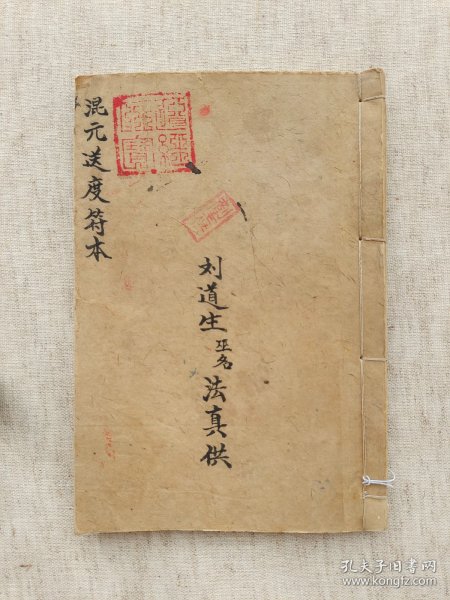 混元送度符本
刘道生巫名法真供
道經師寶
孔夫子旧书网
www.kongfz.com